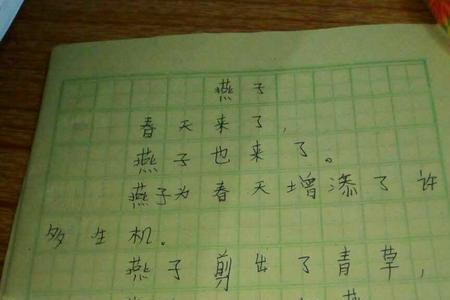 燕子
春天来了，
燕子也来了。
燕子为春天增添了许
多生机。
燕子剪出了青草，